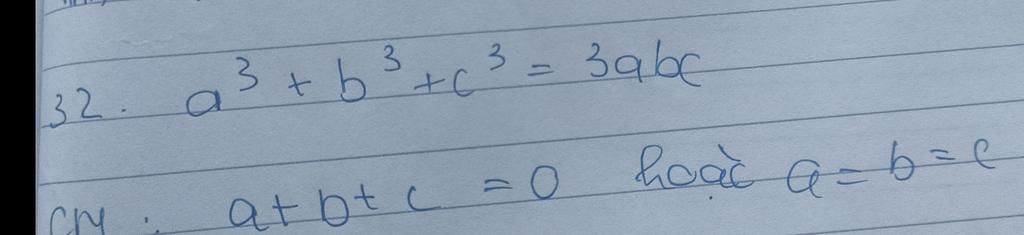 32. a³ + b³ + c³ = 3abc
CM: a + b + c = 0 hoặc a = b = c